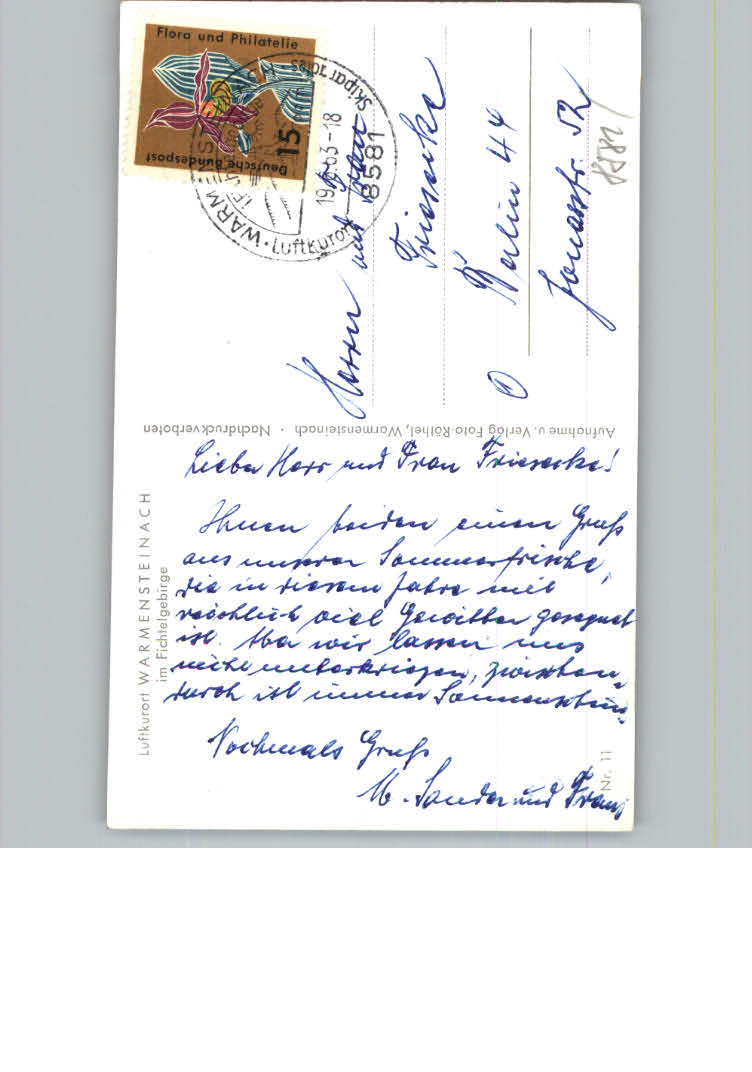 Flora und Philatelie
15
Deutsche Bundespost
WARMENSTEINACH
Luftkurort
Skiparadies
19.6.63-18
8581
Herrn und Frau
Friesecke
Berlin 44
Jonasstr. 52
8581
Aufnahme u. Verlag Foto-Röthel, Warmensteinach · Nachdruckverboten
Luftkurort WARMENSTEINACH
im Fichtelgebirge
Lieber Herr und Frau Friesecke!
Ihnen beiden einen Gruß
aus unserer Sommerfrische,
die in diesem Jahre mit
reichlich viel Gewitter gesegnet
ist. Aber wir lassen uns
nicht unterkriegen, zwischen-
durch ist immer Sonnenschein.
Nochmals Gruß
M. Sander und Frau
Nr. 11